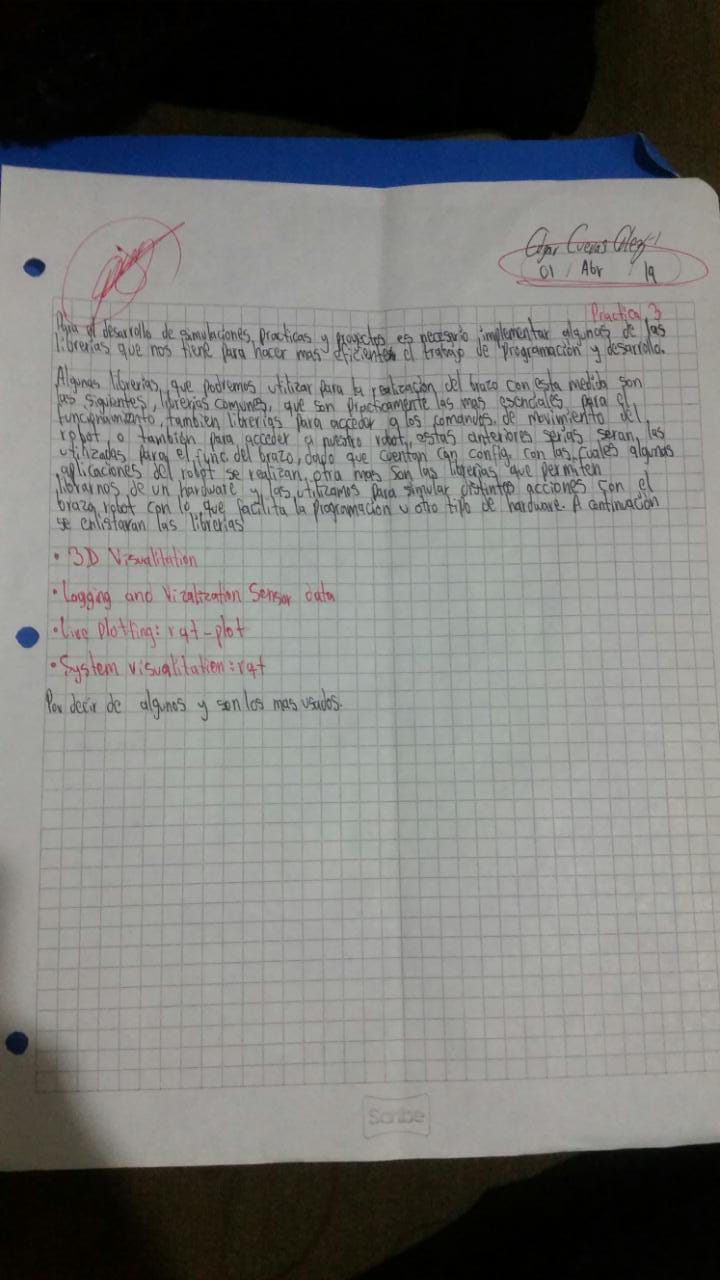 Cuevas
01 / Abr / 19
Practica 3
Para el desarrollo de simulaciones, practicas y proyectos es necesario implementar algunos de las
librerias que nos tiene para hacer mas eficiente el trabajo de programación y desarrollo.
Algunas librerias, que podremos utilizar para la realización del brazo con esta medida son
las siguientes, librerias comunes, que son practicamente las mas esenciales para el
funcionamiento, tambien librerias para acceder a los comandos de movimiento del
robot, o también para acceder a nuestro robot, estas anteriores serias seran las
utilizadas para el func. del brazo, dado que cuentan con config. con las cuales algunas
aplicaciones del robot se realizan, otra mas son las librerias que permiten
librarnos de un hardware y las utilizamos para simular distintas acciones con el
brazo robot con lo que facilita la programación u otro tipo de hardware. A continuación
se enlistaran las librerias
• 3D Visualitation
• Logging and Vizalization Sensor data
• Live Plotting: rqt-plot
• System visualitation: rqt
Por decir de algunos y son los mas usados.
Scribe